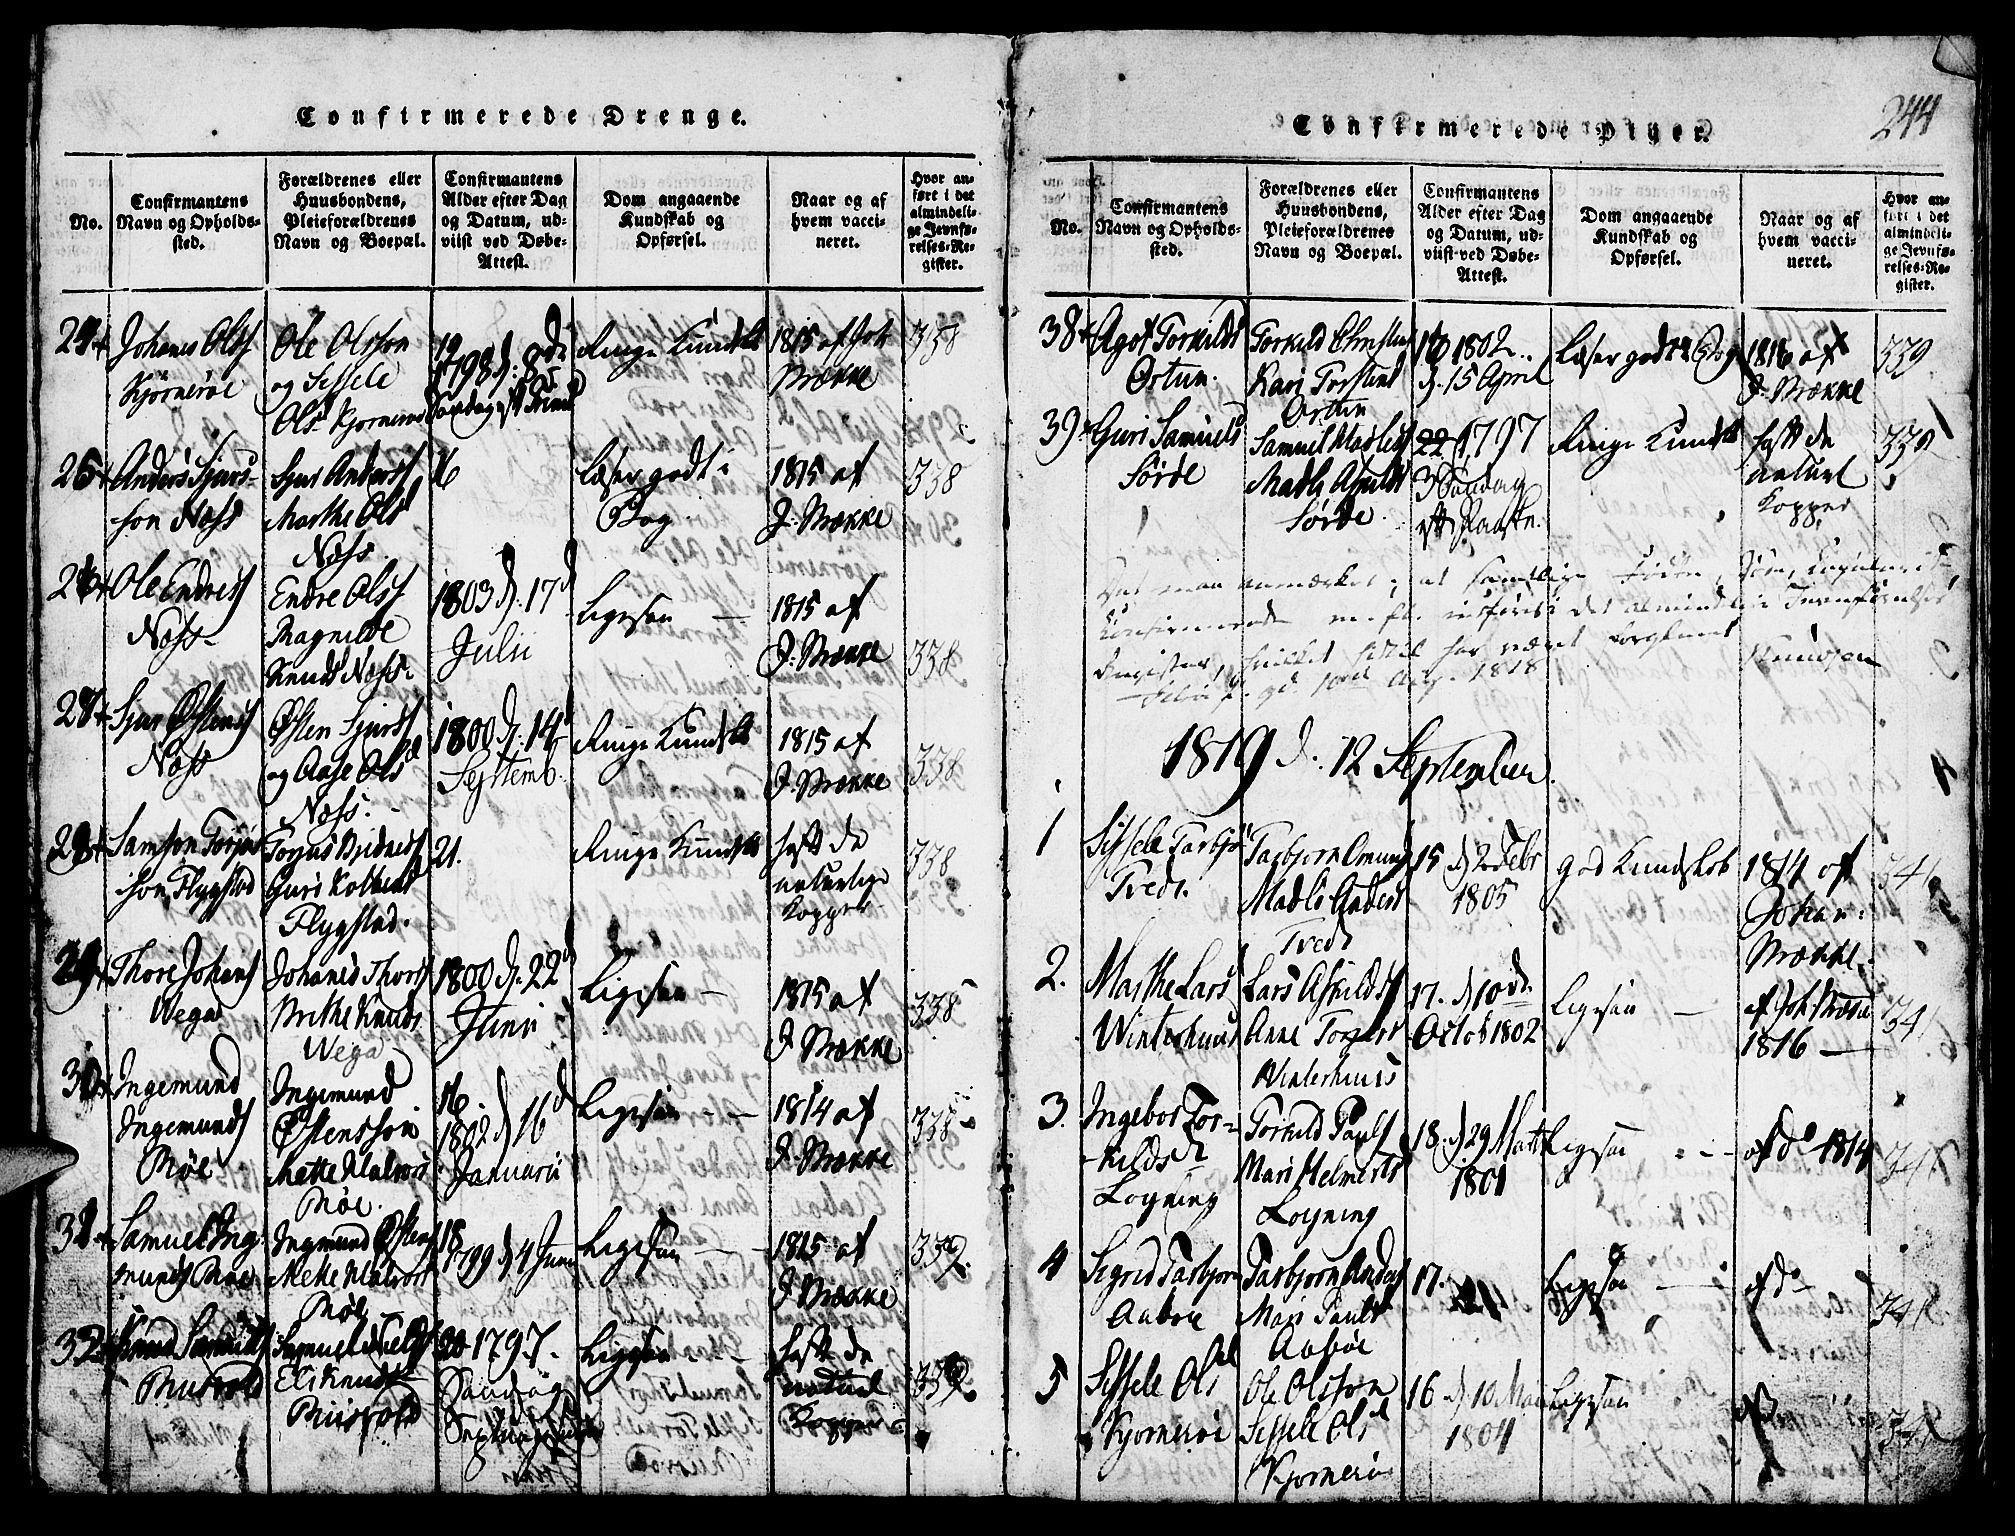 Confirmerede Drenge.
No.
Confirmantens
Navn og Opholds-
sted.
Forældrenes eller
Huusbondens,
Pleieforældrenes
Navn og Boepæl.
Confirmantens
Alder efter Dag
og Datum, ud-
viist ved Døbe-
Attest.
Dom angaaende
Kundskab og
Opførsel.
Naar og af
hvem vacci-
neret.
Hvor an-
ført i det
almindeli-
ge Jevnfø-
relses-Re-
gister.
Johanes Ols
Kjørnerøe
Ole Olsson
og Sissele
Ols Kjørnerøe
19
1798 d. 8de
Ringe Kundsk
1815 af Joh
Brække
338
25
Anders Sjurs-
son Næss
Sjur Anders
Marthe Ols
Næss
16
Læser godt i
Bog
1815 af
J. Brække
338
26
Ole Endres
Næss
Endre Ols
Ragnilde
Knuds Næss
1803 d. 17d
Julii
Ligesaa
1815 af
J. Brække
338
27
Sjur Østens
Næss
Østen Sjurs
og Aase Ols
Næss
1800 d. 14
Septemb.
Ringe Kundsk
1815 af
J. Brække
338
28
Samson Torjus
son Flygstad
Guri
Flygstad.
21.
Ringe Kundsk
haft de
naturlige
Kopper
338
29
Thore Johans
Wega
Johanes Thors
Brithe Knuds
Wega
1800 d. 22
Juni
Ligesaa
1815 af
J. Brække
338
30
Ingemund
Ingemunds
Røe
Ingemund
Østensson
Mette
Røe.
16.
1802 d 16d
Januarii
Ligesaa
1814 af
J. Brække
338
31
Samuel Ing
munds Røe
Ingmund Østens
Mette
Røe
18
1799 d 4 Juni
Ligesaa
1815 af
J. Brække
339
32
Knud Samuels
Samuel
Eli Knuds
20 1797.
Søndag
Ligesaa
haft de
naturl
Kopper
339
244
Confirmerede Piger.
No.
Confirmantens
Navn og Opholds-
sted.
Forældrenes eller
Huusbondens,
Pleieforældrenes
Navn og Boepæl.
Confirmantens
Alder efter Dag
og Datum, ud-
viist ved Døbe-
Attest.
Dom angaaende
Kundskab og
Opførsel.
Naar og af
hvem vacci-
neret.
Hvor an-
ført i det
almindeli-
ge Jevnfø-
relses-Re-
gister.
38
Agot Torkilds
Ørtun.
Torkild
Kari Torstens
Ørtun
16 1802
d. 15 April
Læser godt i Bog
1816 af
J. Brække
339
39
Guri Samuels
Sørde
Samuel
Madle
Sørde
22 1797
3 Søndag
eft Paaske.
Ringe Kundsk
haft de
naturl
Kopper
339
Det maa anmærkes, at samtlige Fødte, Døde, Copulerede
Confirmerede m. fl. indføres i det almindelige Jevnførelses
Register, hvilket hidtil har været forglemt
1818
Knudsen
1819 d. 12 September.
1
Sissele Tarbjø
Tredt
Tarbjørn Omund
Madle Anders
Tredt
15 d 2 Febr
1805
god Kundskab
1814 af
Johan
Brække
341
2.
Marthe Lars
Winterhuus
Lars Askilds
Anne Torgers
Winterhuus
17. d 10de
Octob 1802
Ligesaa
af Joh Bræk
1816
341
3.
Ingebor Tor-
kilds
Løgning
Torkild Pauls
Mari Helmers
Løgning
18. d 29 Marti
1801
Ligesaa
af do 1814
341
4
Sigrid Tarbjørn
Aabøe
Tarbjørn Anders
Mari Pauls
Aabøe
17.
Ligesaa
af do
341
5
Sissele Ols
Kjørnerøe
Ole Olsson
Sissele Ols
Kjørnerøe
16 d 10 Mai
1804
Ligesaa
341